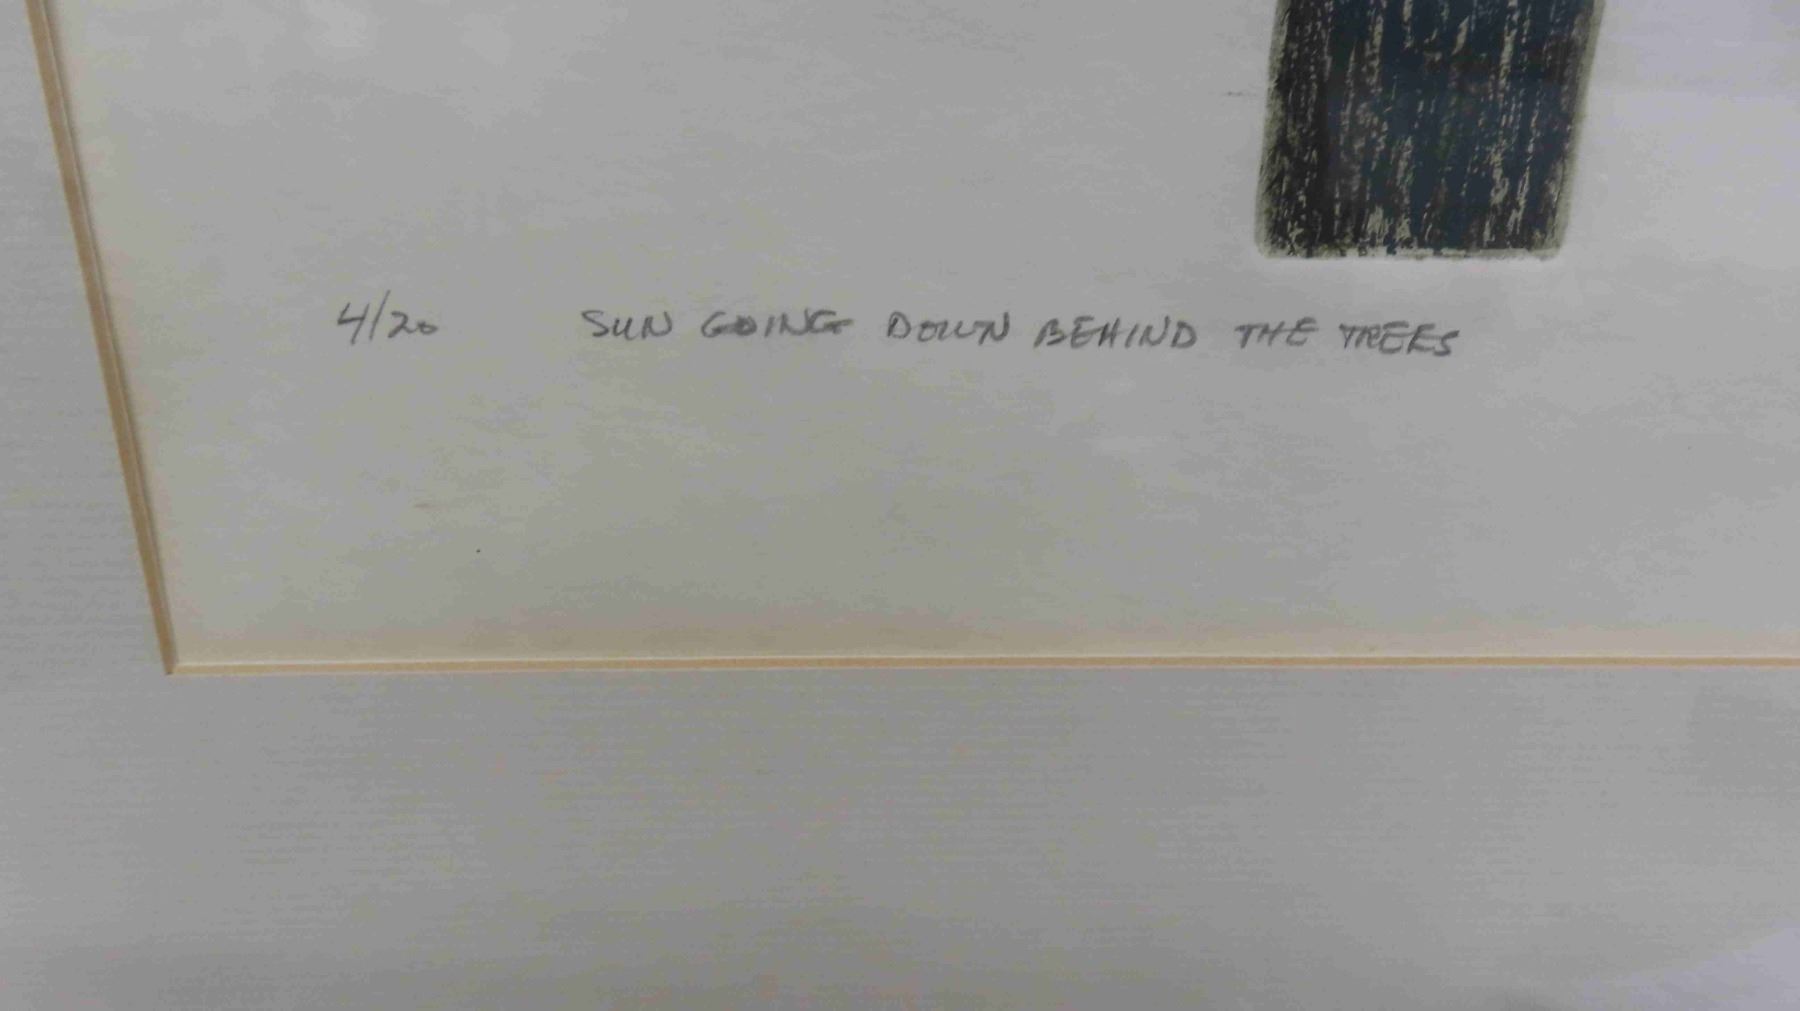 4/20 SUN GOING DOWN BEHIND THE TREES